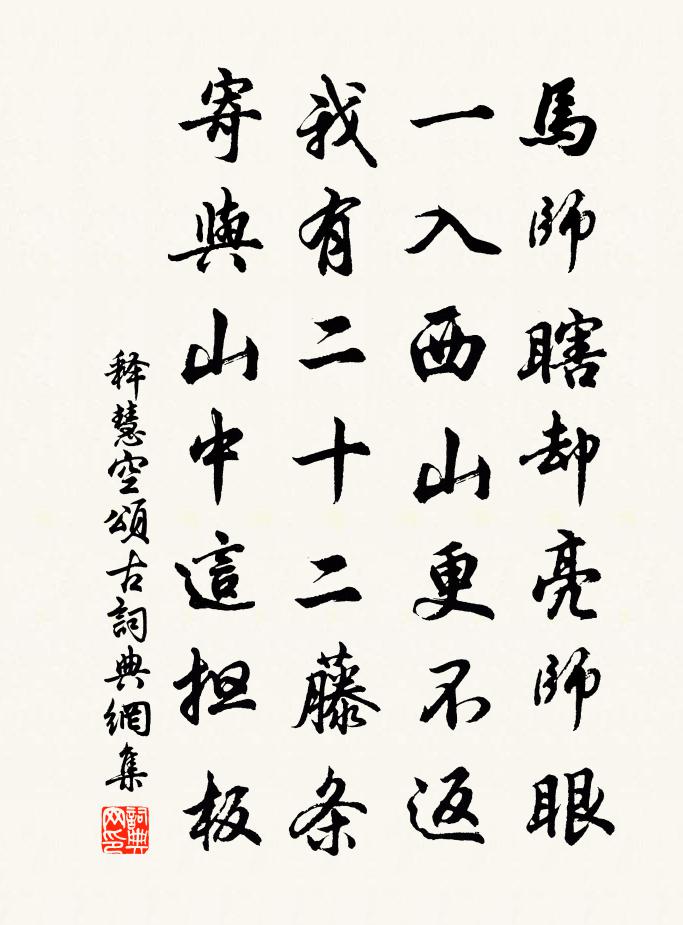 馬師瞎却亮師眼
一入西山更不返
我有二十二藤条
寄與山中這担板
释慧空頌古詞典網集
詞典
网印